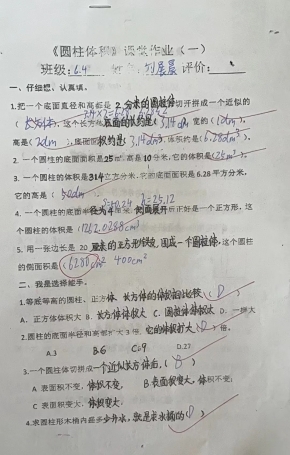 《圆柱体积》课堂作业(一)
班级:6.4 刘晨晨 评价:
一、仔细想、认真填。
1.把一个底面直径和高都是 2 分米的圆柱体切拼成一个近似的
(长方体),这个长方体底面的长约是(3.14dm),宽约(1dm),
高是(2dm),底面面积约是(3.14dm²),体积约是(6.28dm³)。
2. 一个圆柱的底面面积是25㎡,高是10分米,它的体积是(25m³)。
3. 一个圆柱的体积是314立方分米,它的底面面积是6.28平方分米,
它的高是(50dm)
S=50.24 h=25.12
4. 一个圆柱的底面半径为4厘米,侧面展开后正好是一个正方形,这
个圆柱的体积是(1262.0288cm³)
5. 用一张边长是 20 厘米的正方形铁皮,围成一个圆柱体,这个圆柱
的侧面积是(6280cm² 400cm²
二、我是选择能手。
1.等底等高的圆柱、正方体、长方体的体积相比较(D)
A. 正方体体积大 B. 长方体体积大 C. 圆柱体体积大 D. 一样大
2.圆柱的底面半径和高都扩大3倍,它的体积扩大(D)倍。
A.3 B.6 C.9 D.27
3.一个圆柱体切拼成一个近似长方体后,(B)
A 表面积不变,体积不变; B 表面积变大,体积不变;
C 表面积变大,体积变大;
4.求圆柱形木桶内盛多少升水,就是求水桶的()